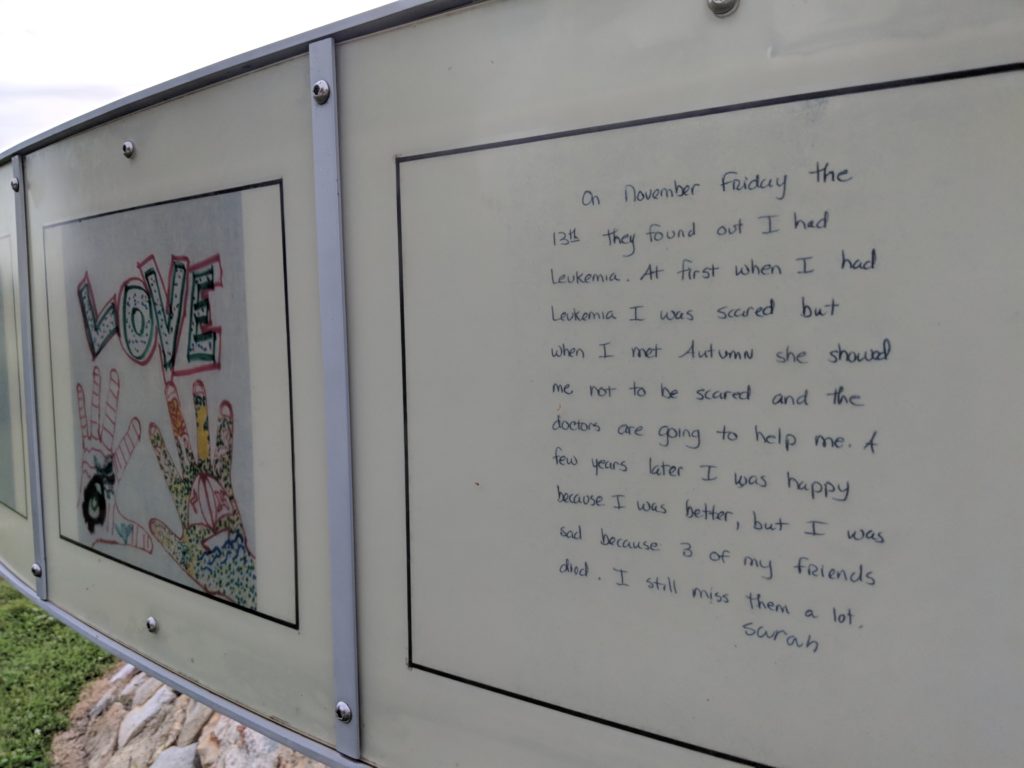 LOVE
On November Friday the
13th they found out I had
Leukemia. At first when I had
Leukemia I was scared but
when I met Autumn she showed
me not to be scared and the
doctors are going to help me. A
few years later I was happy
because I was better, but I was
sad because 3 of my friends
died. I still miss them a lot.
Sarah